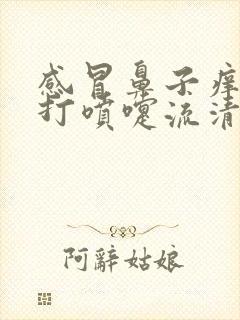 感冒鼻子痒
打喷嚏流清
阿辭姑娘